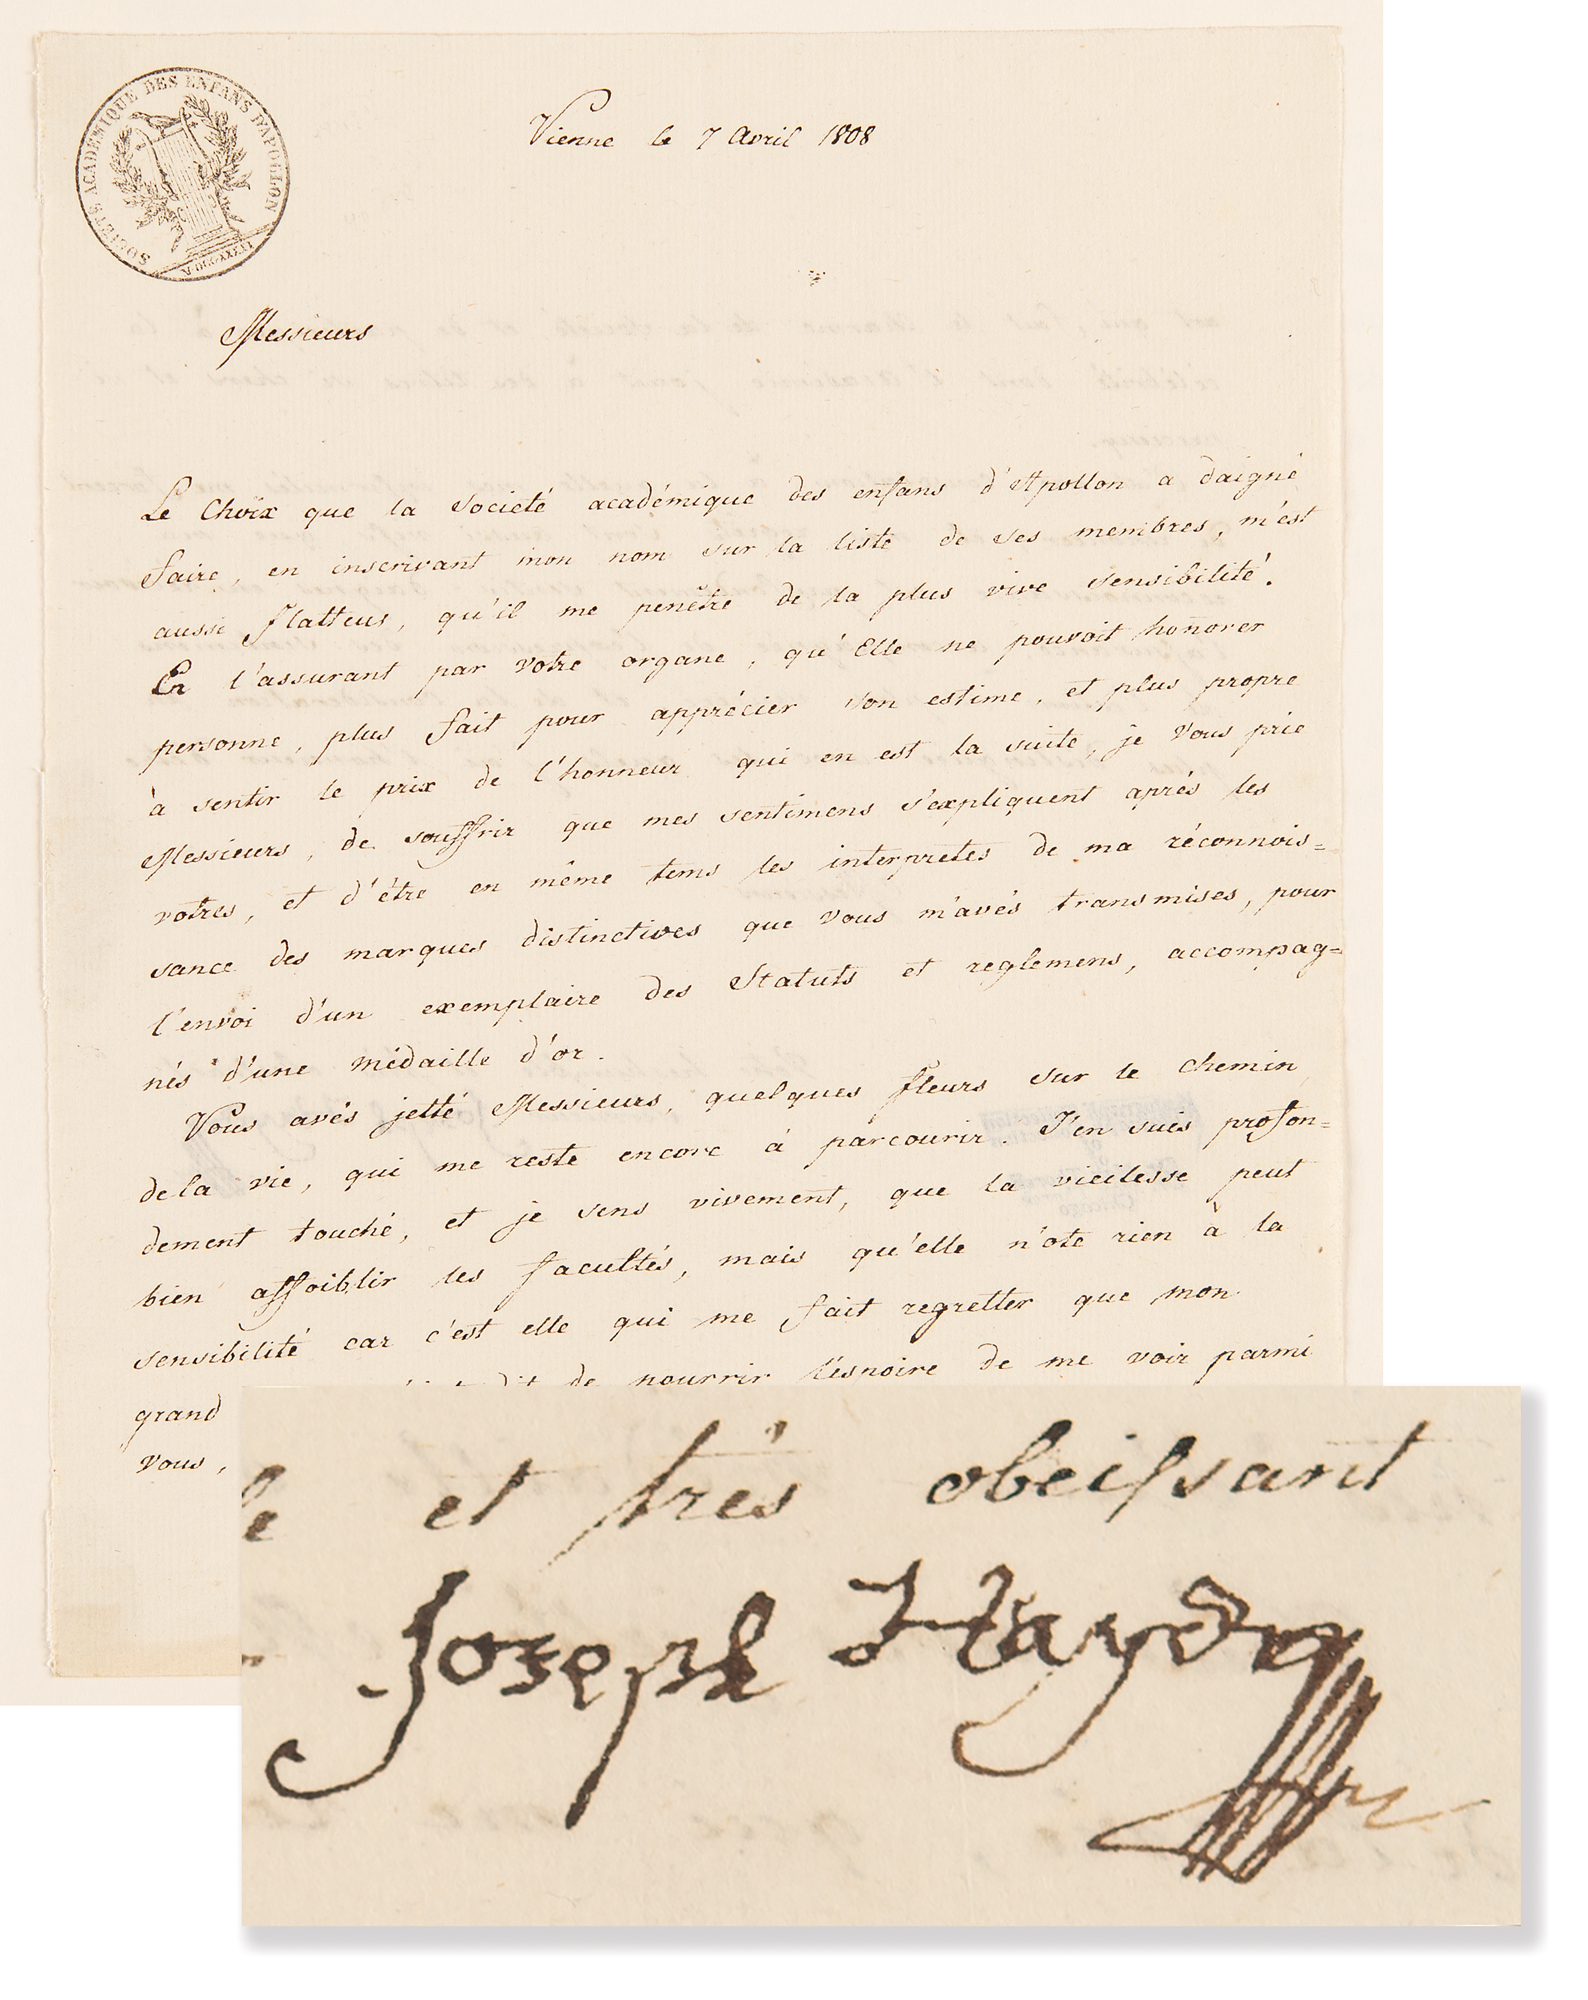 SOCIÉTÉ ACADÉMIQUE DES ENFANS D'APOLLON
Vienne le 7 Avril 1808
Messieurs
Le Choix que la Societé académique des enfans d'Apollon a daigné
faire, en inscrivant mon nom sur la liste de ses membres, m'est
aussi flatteus, qu'il me penêtre de la plus vive sensibilité.
En l'assurant par votre organe, qu'Elle ne pouvoit honorer
personne, plus fait pour apprécier son estime, et plus propre
à sentir le prix de l'honneur qui en est la suite, je Vous prie
Messieurs, de souffrir que mes sentimens s'expliquent aprés les
votres, et d'être en même tems les interpretes de ma réconnois=
sance des marques distinctives que Vous m'avés transmises, pour
l'envoi d'un exemplaire des Statuts et reglemens, accompag=
nés d'une médaille d'or.
Vous avés jetté Messieurs, quelques fleurs sur le chemin
de la vie, qui me reste encore à parcourir. J'en suis profon=
dement touché, et je sens vivement, que la vieilesse peut
bien affoiblir les facultés, mais qu'elle n'ote rien à la
sensibilité car c'est elle qui me fait regretter que mon
grand de nourrir l'espoire de me voir parmi
vous,
et trés obeissant
Joseph Haydn